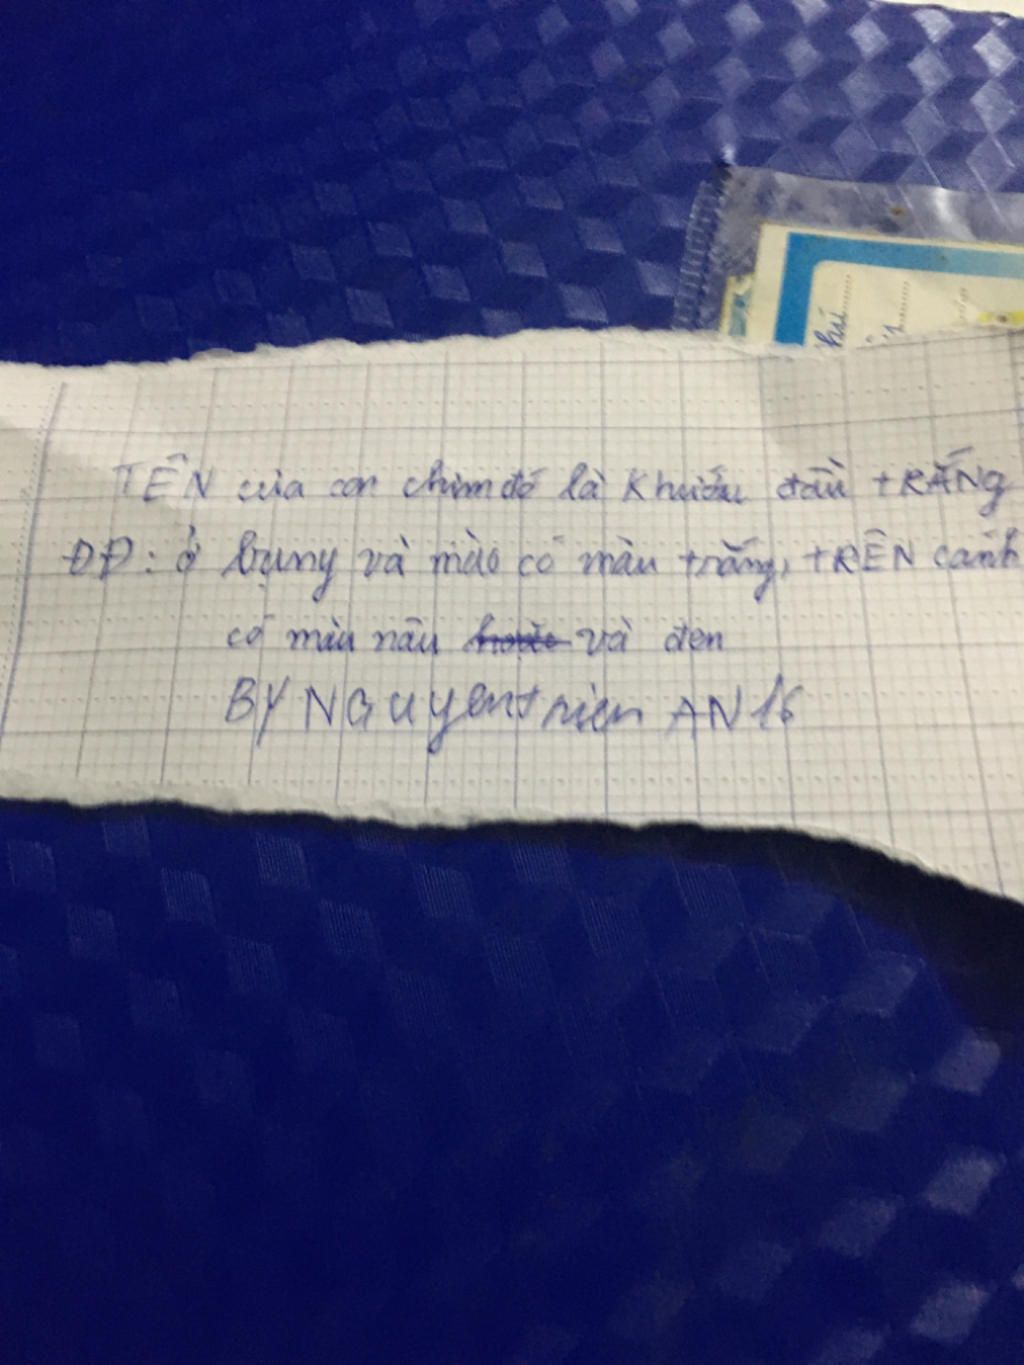 TÊN của con chim đó là Khướu đầu tRẮNg
ĐĐ: ở bụng và mào có màu trắng, tRÊN cánh
có màu nâu và đen
BY NGuyenthien AN16